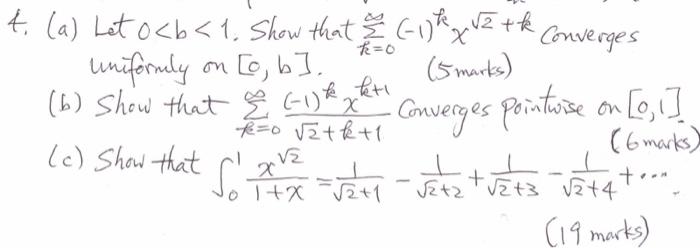 4. (a) Let 0<b<1. Show that ∑_{k=0}^{∞} (-1)^k x^{√2+k} Converges
uniformly on [0, b]. (5 marks)
(b) Show that ∑_{k=0}^{∞} (-1)^k x^{k+1} / (√2+k+1) Converges pointwise on [0,1]
(6 marks)
(c) Show that ∫_0^1 x^{√2} / (1+x) = 1/(√2+1) - 1/(√2+2) + 1/(√2+3) - 1/(√2+4) + ....
(19 marks)